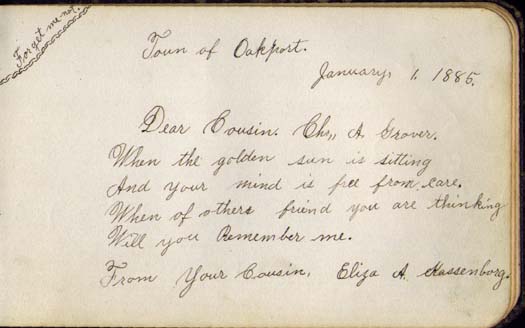 Forget me not.
Town of Oakport.
January, 1. 1885.
Dear Cousin. Chs,, A. Grover.
When the golden sun is sitting
And your mind is free from care.
When of others friend you are thinking
Will you Remember me.
From Your Cousin, Eliza A. Kassenborg.